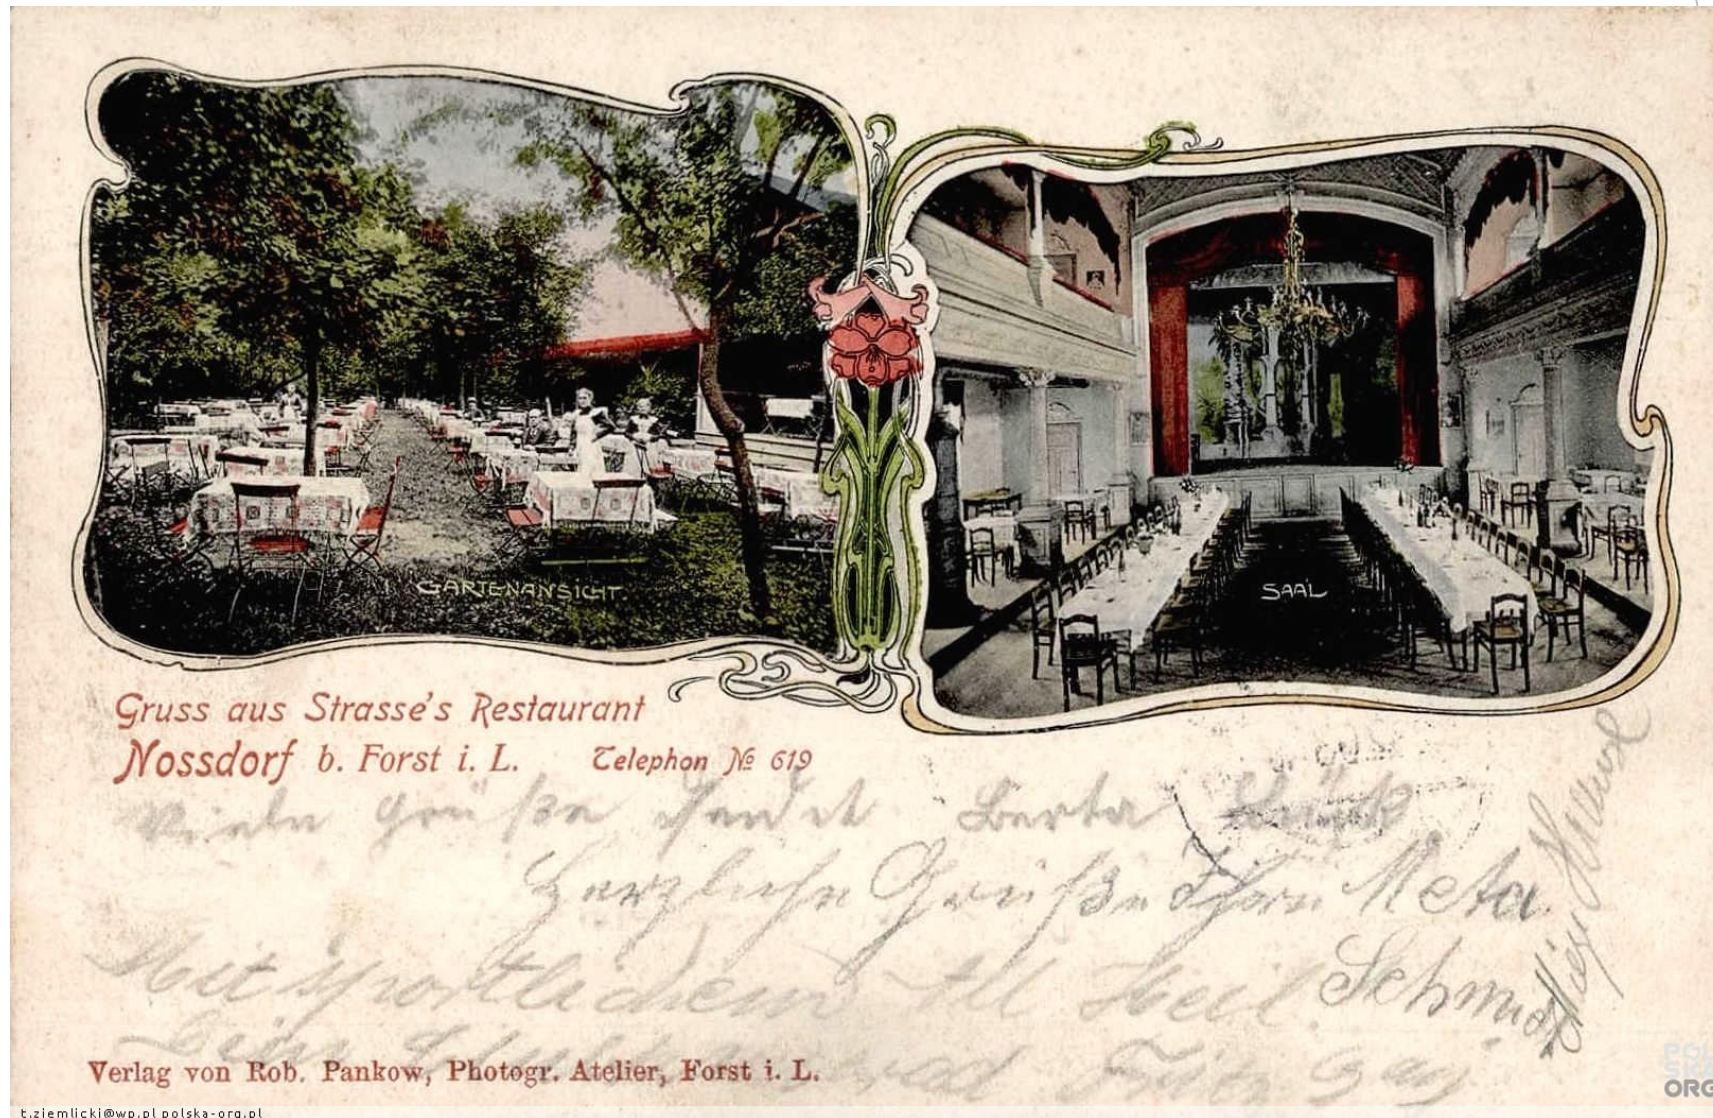 GARTENANSICHT
SAAL
Gruss aus Strasse's Restaurant
Nossdorf b. Forst i. L. Telephon № 619
Viele Grüße sendet Berta
Herzliche Grüße Ihre Meta
Schmidt
Mit sportlichem All Heil
Verlag von Rob. Pankow, Photogr. Atelier, Forst i. L.
POLSKA.ORG
t.ziemlicki@wp.pl polska-org.pl